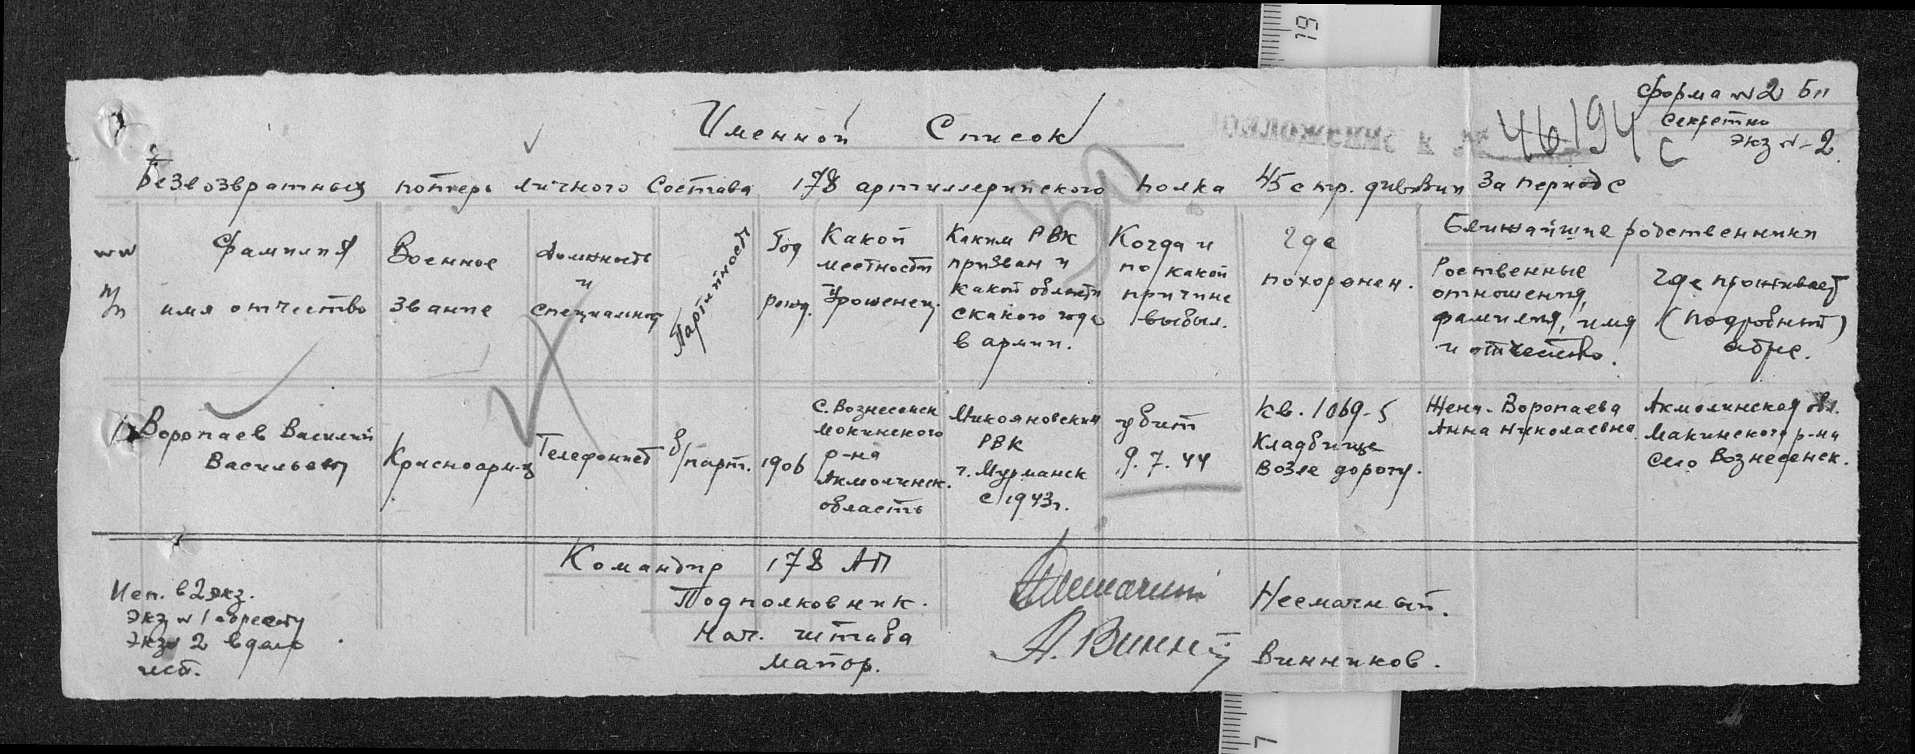 Форма №2 Бп
Секретно
Экз № 2.
Именной Список
Приложение к №
46194 с
50
Безвозвратных потерь личного состава 178 артиллерийского полка 45 стр. дивизии За период с
№№
п/п
Фамилия
имя отчество
Военное
звание
Должность
и
специальност
Партийность
Год
рожд.
Какой
местности
Урошенец.
Каким РВК
призван и
какой области
с какого года
в армии.
Когда и
по какой
причине
выбыл.
Где
похоронен.
Ближайшие родственники
Роственные
отношения,
фамилия, имя
и отчество.
Где проживает
(подробный)
адрес.
1. Воропаев Василий
Васильевич
Красноармец
Телефонист
б/парт.
1906
с. Вознесенск
мокинского
р-на
Акмолинск.
область
Микояновским
РВК
г. Мурманск
с 1943г.
убит
9.7.44
кв. 1069-5
Кладбище
возле дороги.
Жена - Воропаева
Анна Николаевна
Акмолинская обл.
Макинского р-на
село Вознесенск.
Командир 178 АП
Подполковник. Несмачный.
Нач. штаба
майор. А. Винник Винников.
Исп. в 2 экз.
Экз № 1 адресату
Экз 2 в дело
исп.
19
7